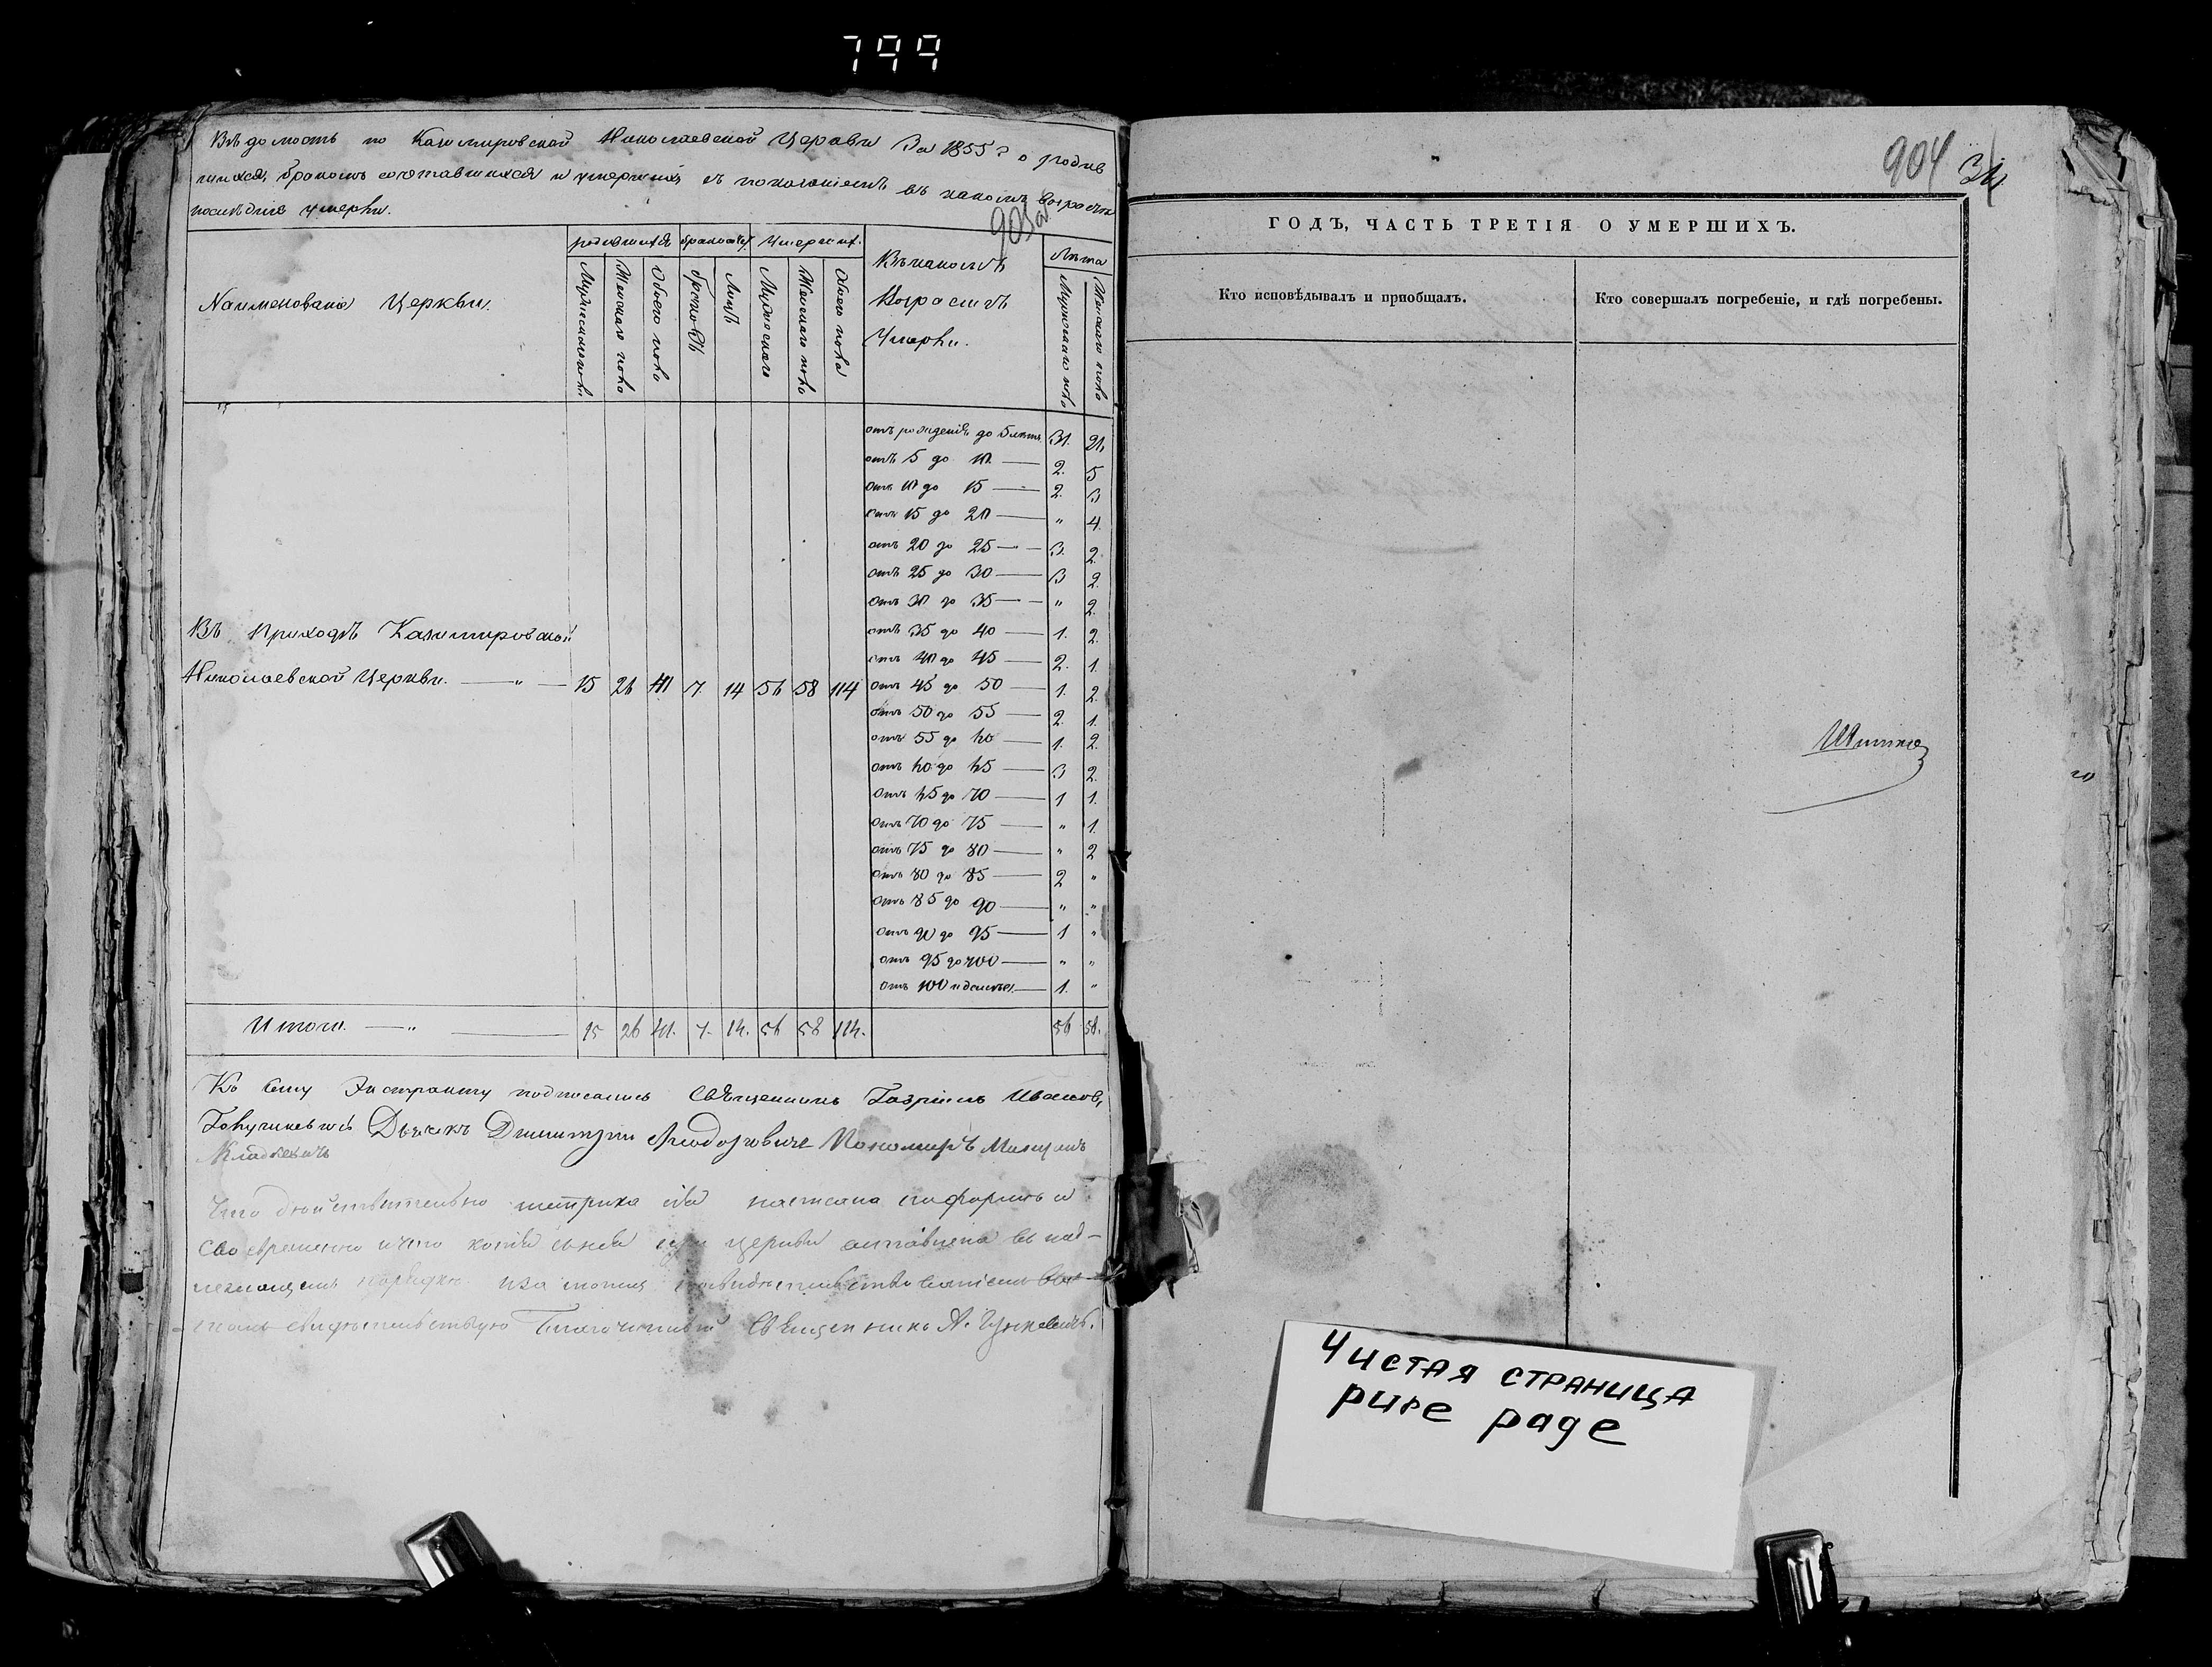 799
Вѣдомость по Казимировской Николаевской Церкви За 1855 г о родив
шихся, бракомъ сочетавшихся и умершихъ съ показаніемъ въ какомъ возрастѣ
послѣдніе умерли.
903об
родившихся бракосоч. Умерших. Лѣта
Наименованіе Церкви.
Мужескаго пола
Женскаго пола
Обоего пола
браковъ
Лицъ
Мужескаго
Женскаго пола
Обоего пола
Въ какомъ
Возрастѣ
Умерли.
Мужескаго пола
Женскаго пола
отъ рожденія до 5 лѣтъ 31. 21.
отъ 5 до 10 — 2. 5
отъ 10 до 15 — 2. 3
отъ 15 до 20 — „ 4.
отъ 20 до 25 — 3. 2.
отъ 25 до 30 — 3 2.
отъ 30 до 35 — „ 2.
отъ 35 до 40 — 1. 2.
отъ 40 до 45 — 2. 1.
отъ 45 до 50 — 1. 2.
отъ 50 до 55 — 2. 1.
отъ 55 до 60 — 1. 2.
отъ 60 до 65 — 3 2.
отъ 65 до 70 — 1 1.
отъ 70 до 75 — „ 1.
отъ 75 до 80 — „ 2
отъ 80 до 85 — 2 „
отъ 85 до 90 — „ „
отъ 90 до 95 — 1 „
отъ 95 до 100 — „ „
отъ 100 и далѣе — 1. „
Въ Приходѣ Казимировской
Николаевской Церкви. — „ — 15 26 41 7. 14 56 58 114
Итого. — „ — 15 26 41. 7. 14. 56 58 114. 56 58.
Къ сему Экстракту подписались Священникъ Гавріилъ Ивановъ
Дьячекъ Димитрій Пономарь Михаилъ
Что дѣйствительно метрика сія писана по формѣ и
своевременно и что копія съ нея при церкви оставлена въ над-
лежащемъ порядкѣ
свидѣтельствую Благочинный Священникъ А.
904
ГОДЪ, ЧАСТЬ ТРЕТІЯ О УМЕРШИХЪ.
Кто исповѣдывалъ и пріобщалъ.
Кто совершалъ погребеніе, и гдѣ погребены.
Чистая страница
pure page